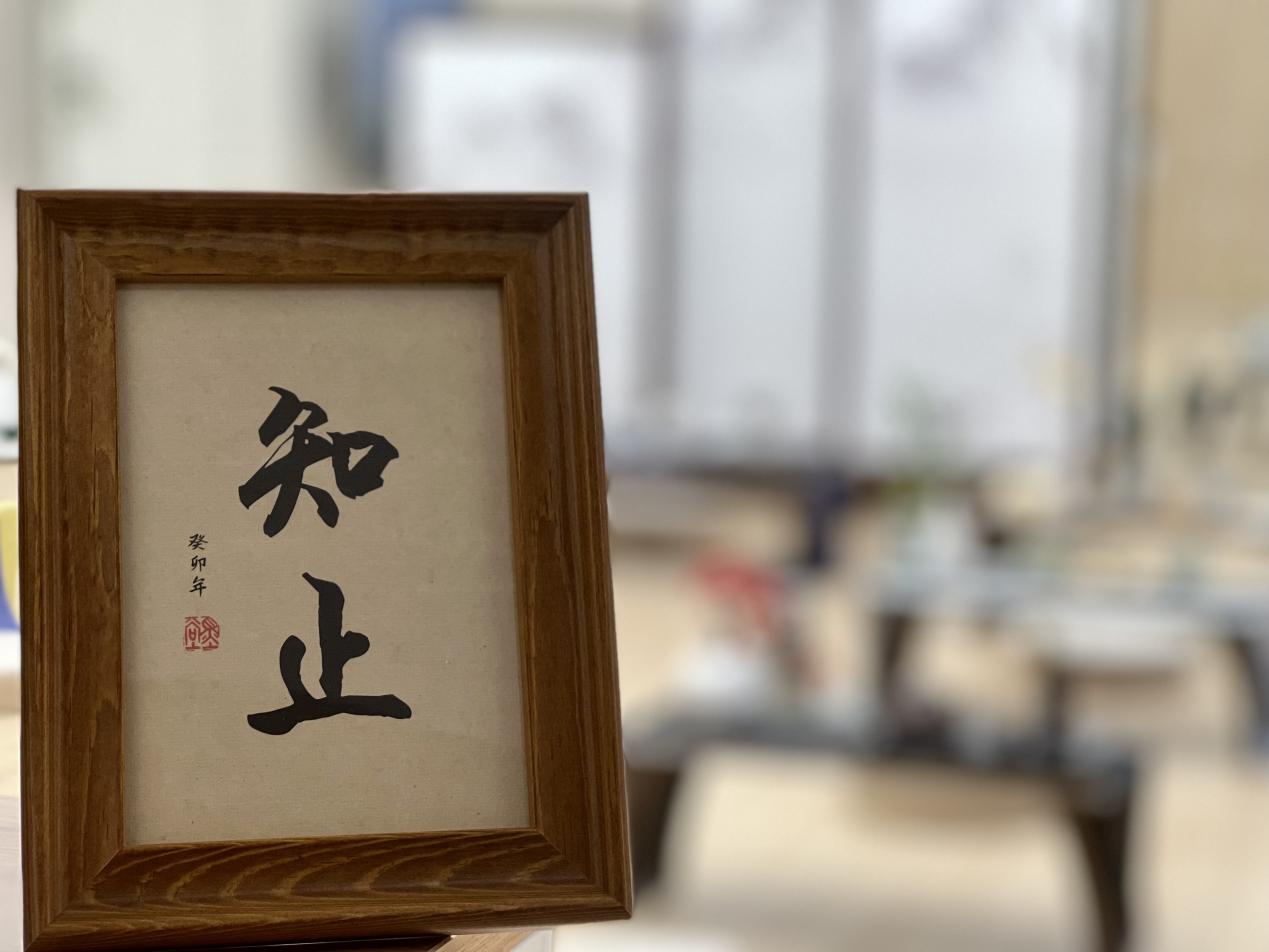 知止
癸卯年